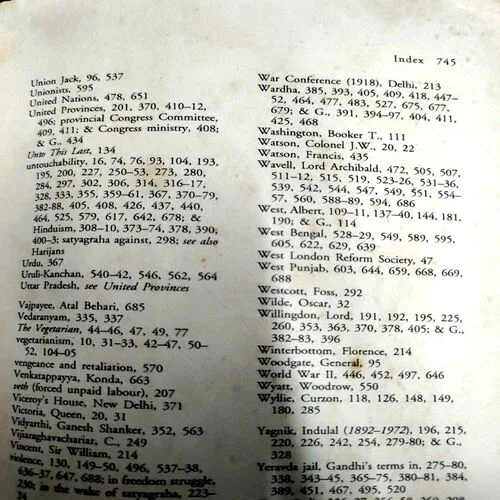 Index 745
Union Jack, 96, 537
Unionists, 595
United Nations, 478, 651
United Provinces, 201, 370, 410–12,
496; provincial Congress Committee,
409, 411; & Congress ministry, 408;
& G., 434
Unto This Last, 134
untouchability, 16, 74, 76, 93, 104, 193,
195, 200, 227, 250–53, 273, 280,
284, 297, 302, 306, 314, 316–17,
328, 333, 355, 359–61, 367, 370–79,
382-88, 405, 408, 426, 437, 440,
464, 525, 579, 617, 642, 678; &
Hinduism, 308–10, 373–74, 378, 390,
400–3; satyagraha against, 298; see also
Harijans
Urdu, 367
Uruli-Kanchan, 540–42, 546, 562, 564
Uttar Pradesh, see United Provinces
Vajpayee, Atal Behari, 685
Vedaranyam, 335, 337
The Vegetarian, 44–46, 47, 49, 77
vegetarianism, 10, 31–33, 42–47, 50–
52, 104–05
vengeance and retaliation, 570
Venkatappayya, Konda, 663
veth (forced unpaid labour), 207
Viceroy's House, New Delhi, 371
Victoria, Queen, 20, 31
Vidyarthi, Ganesh Shanker, 352, 563
Vijiaraghavachariar, C., 249
Vincent, Sir William, 214
violence, 130, 149–50, 496, 537–38,
636–37, 647, 688; in freedom struggle,
230; in the wake of satyagraha, 223–
24
War Conference (1918), Delhi, 213
Wardha, 385, 393, 405, 409, 418, 447–
52, 464, 477, 483, 527, 675, 677,
679; & G., 391, 394–97, 404, 411,
425, 468
Washington, Booker T., 111
Watson, Colonel J.W., 20, 22
Watson, Francis, 435
Wavell, Lord Archibald, 472, 505, 507,
511–12, 515, 519, 523-26, 531–36,
539, 542, 544, 547, 549, 551, 554–
57, 560, 588–89, 594, 686
West, Albert, 109–11, 137–40, 144, 181,
190; & G., 114
West Bengal, 528–29, 549, 589, 595,
605, 622, 629, 639
West London Reform Society, 47
West Punjab, 603, 644, 659, 668, 669,
688
Westcott, Foss, 292
Wilde, Oscar, 32
Willingdon, Lord, 191, 192, 195, 225,
260, 353, 363, 370, 378, 405; & G.,
382–83, 396
Winterbottom, Florence, 214
Woodgate, General, 95
World War II, 446, 452, 497, 646
Wyatt, Woodrow, 550
Wyllie, Curzon, 118, 126, 148, 149,
180, 285
Yagnik, Indulal (1892–1972), 196, 215,
220, 226, 242, 254, 279-80; & G.,
328
Yeravda jail, Gandhi's terms in, 275–80,
338, 343–45, 365–75, 380–81, 384,
389, 451, 467, 495, 520